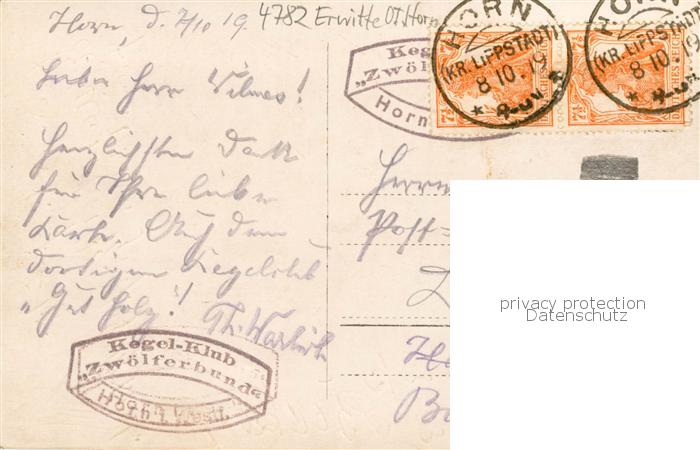 Horn, d. 7/10 19.
4782 Erwitte OT. Horn
Lieber Herr Vilmes!
Herzlichsten Dank
für Ihre liebe
Karte. Auf dem
dortigen Kegelklub
„Gut Holz"!
Th.
Kegel-Klub
„Zwölferbund“
Horn i. Westf.
Kegel
„Zwölf
Horn
HORN
(KR. LIPPSTADT)
8 10. 19
HORN
(KR. LIPPSTADT)
8 10. 19
7½
7½
Herrn
Post-
privacy protection
Datenschutz